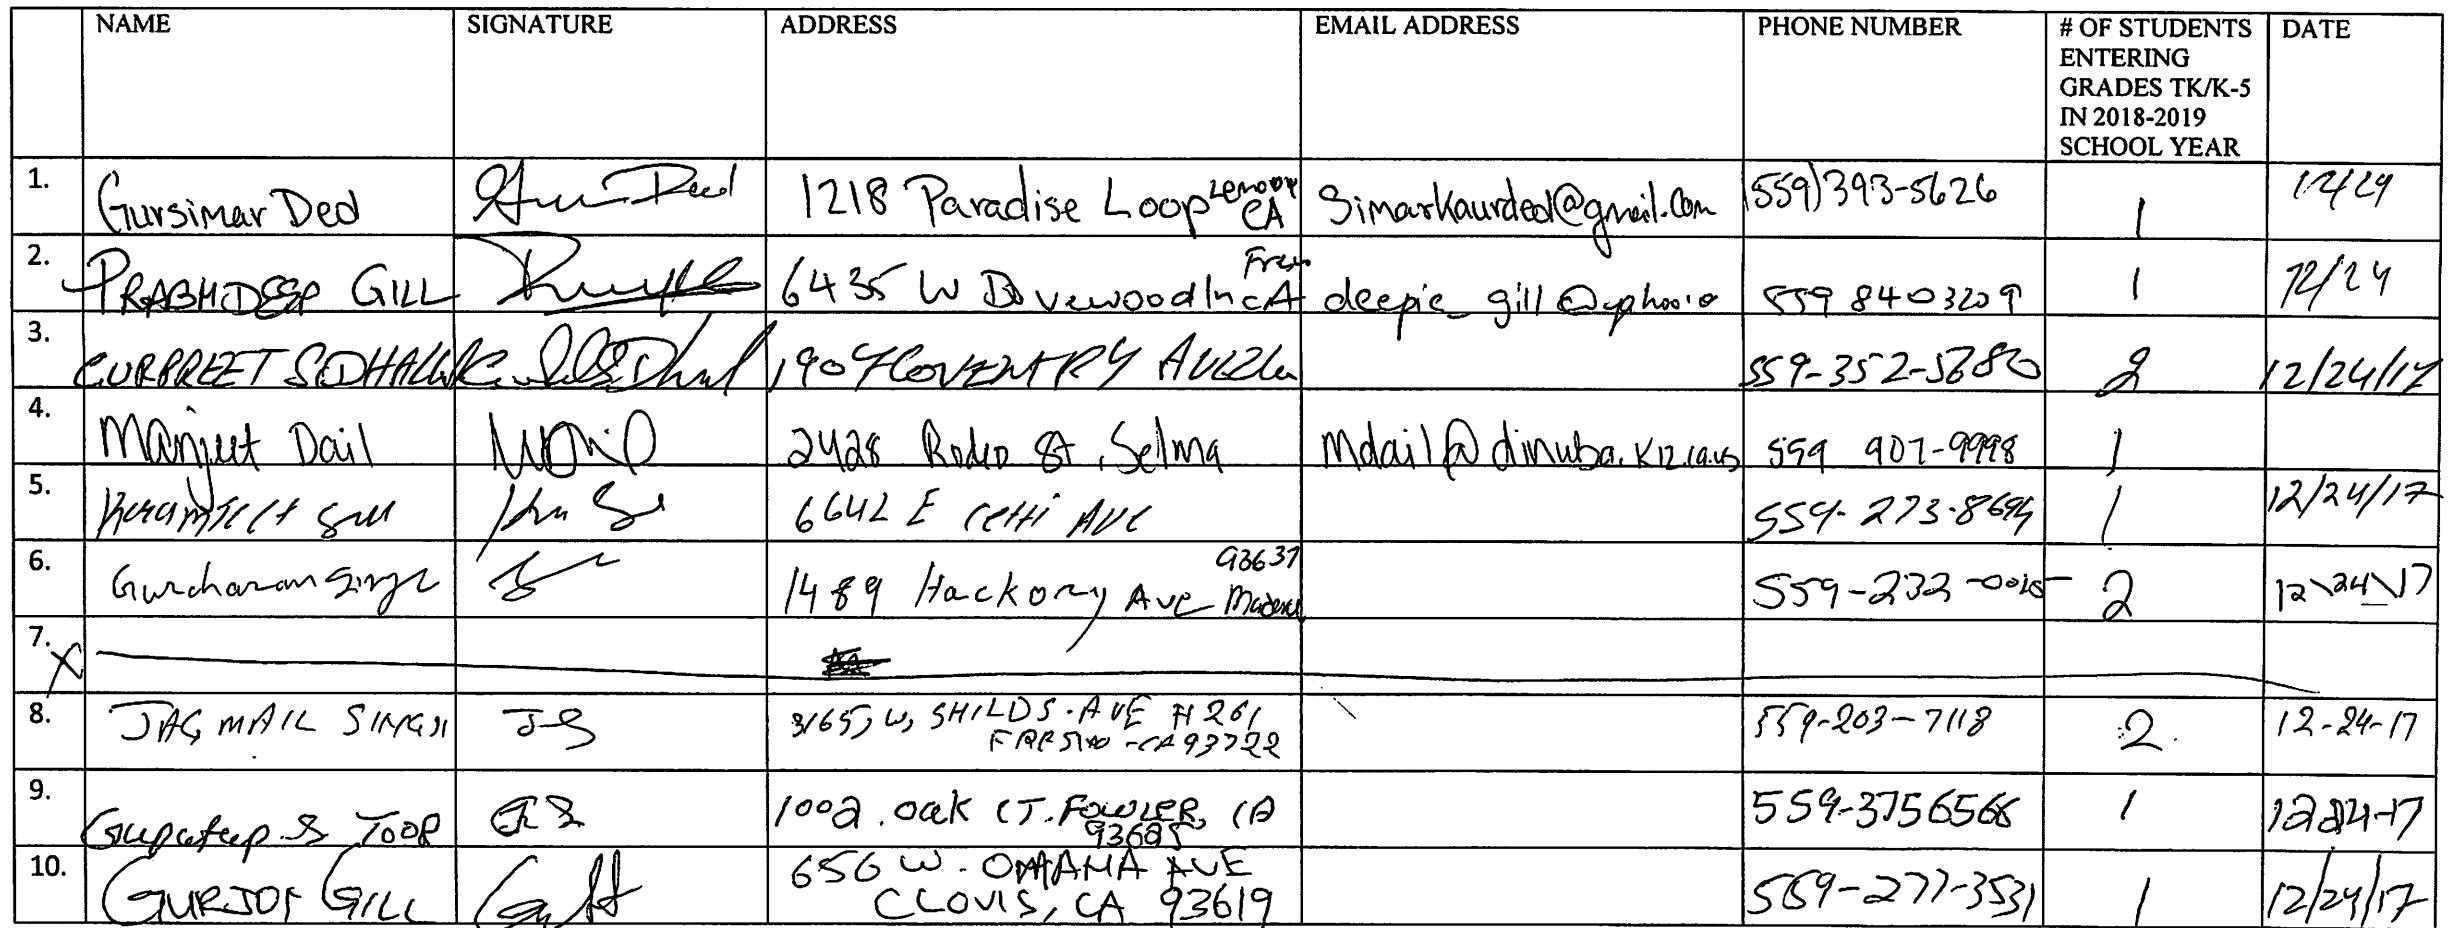 NAME SIGNATURE ADDRESS EMAIL ADDRESS PHONE NUMBER # OF STUDENTS ENTERING GRADES TK/K-5 IN 2018-2019 SCHOOL YEAR DATE
1. Gursimar Ded 1218 Paradise Loop Lemoore CA Simarkaurded@gmail.com (559)393-5626 1 12/24
2. PRABHDEEP GILL 6435 W Dovewood ln CA 559 8403209 1 12/24
3. GURPREET 1904 COVENTRY AVE 559-352-5680 2 12/24/17
4. Manjeet Dail 2428 Rodeo St, Selma Mdail@dinuba.k12.ca.us 559 907-9998 1
5. 6642 E AVE 559-273-8694 1 12/24/17
6. Gurcharan Singh 1489 Hackory Ave Madera 93637 559-232- 2 12\24\17
7. X
8. JAGMAIL SINGH JS 3165, W, SHILDS. AVE # 261 559-203-7118 2. 12-24-17
FRESNO -CA 93722
9. TOOR 1002. Oak CT. FOWLER, CA 559-3756566 1 12-24-17
93625
10. GURJOT GILL 656 W. OMAHA AVE 559-277-3531 1 12/24/17
CLOVIS, CA 93619